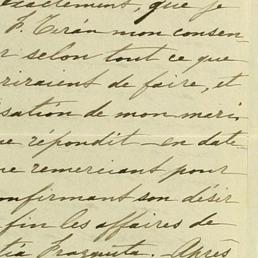 exactement, que je
F. Terán mon consen-
r selon tout ce que
riraient de faire, et
isation de mon mari
ne répondit en date
ne remerciant pour
onfirmant son désir
fin les affaires de
tía Frasquita. Après